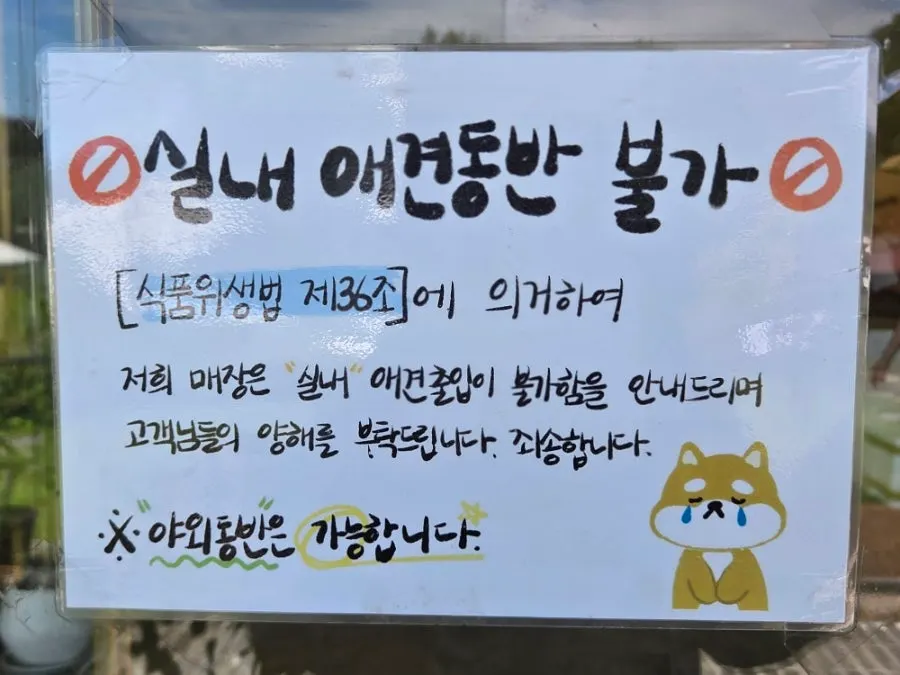 실내 애견동반 불가
[식품위생법 제36조]에 의거하여
저희 매장은 "실내" 애견출입이 불가함을 안내드리며
고객님들의 양해를 부탁드립니다. 죄송합니다.
※ "야외동반"은 가능합니다.